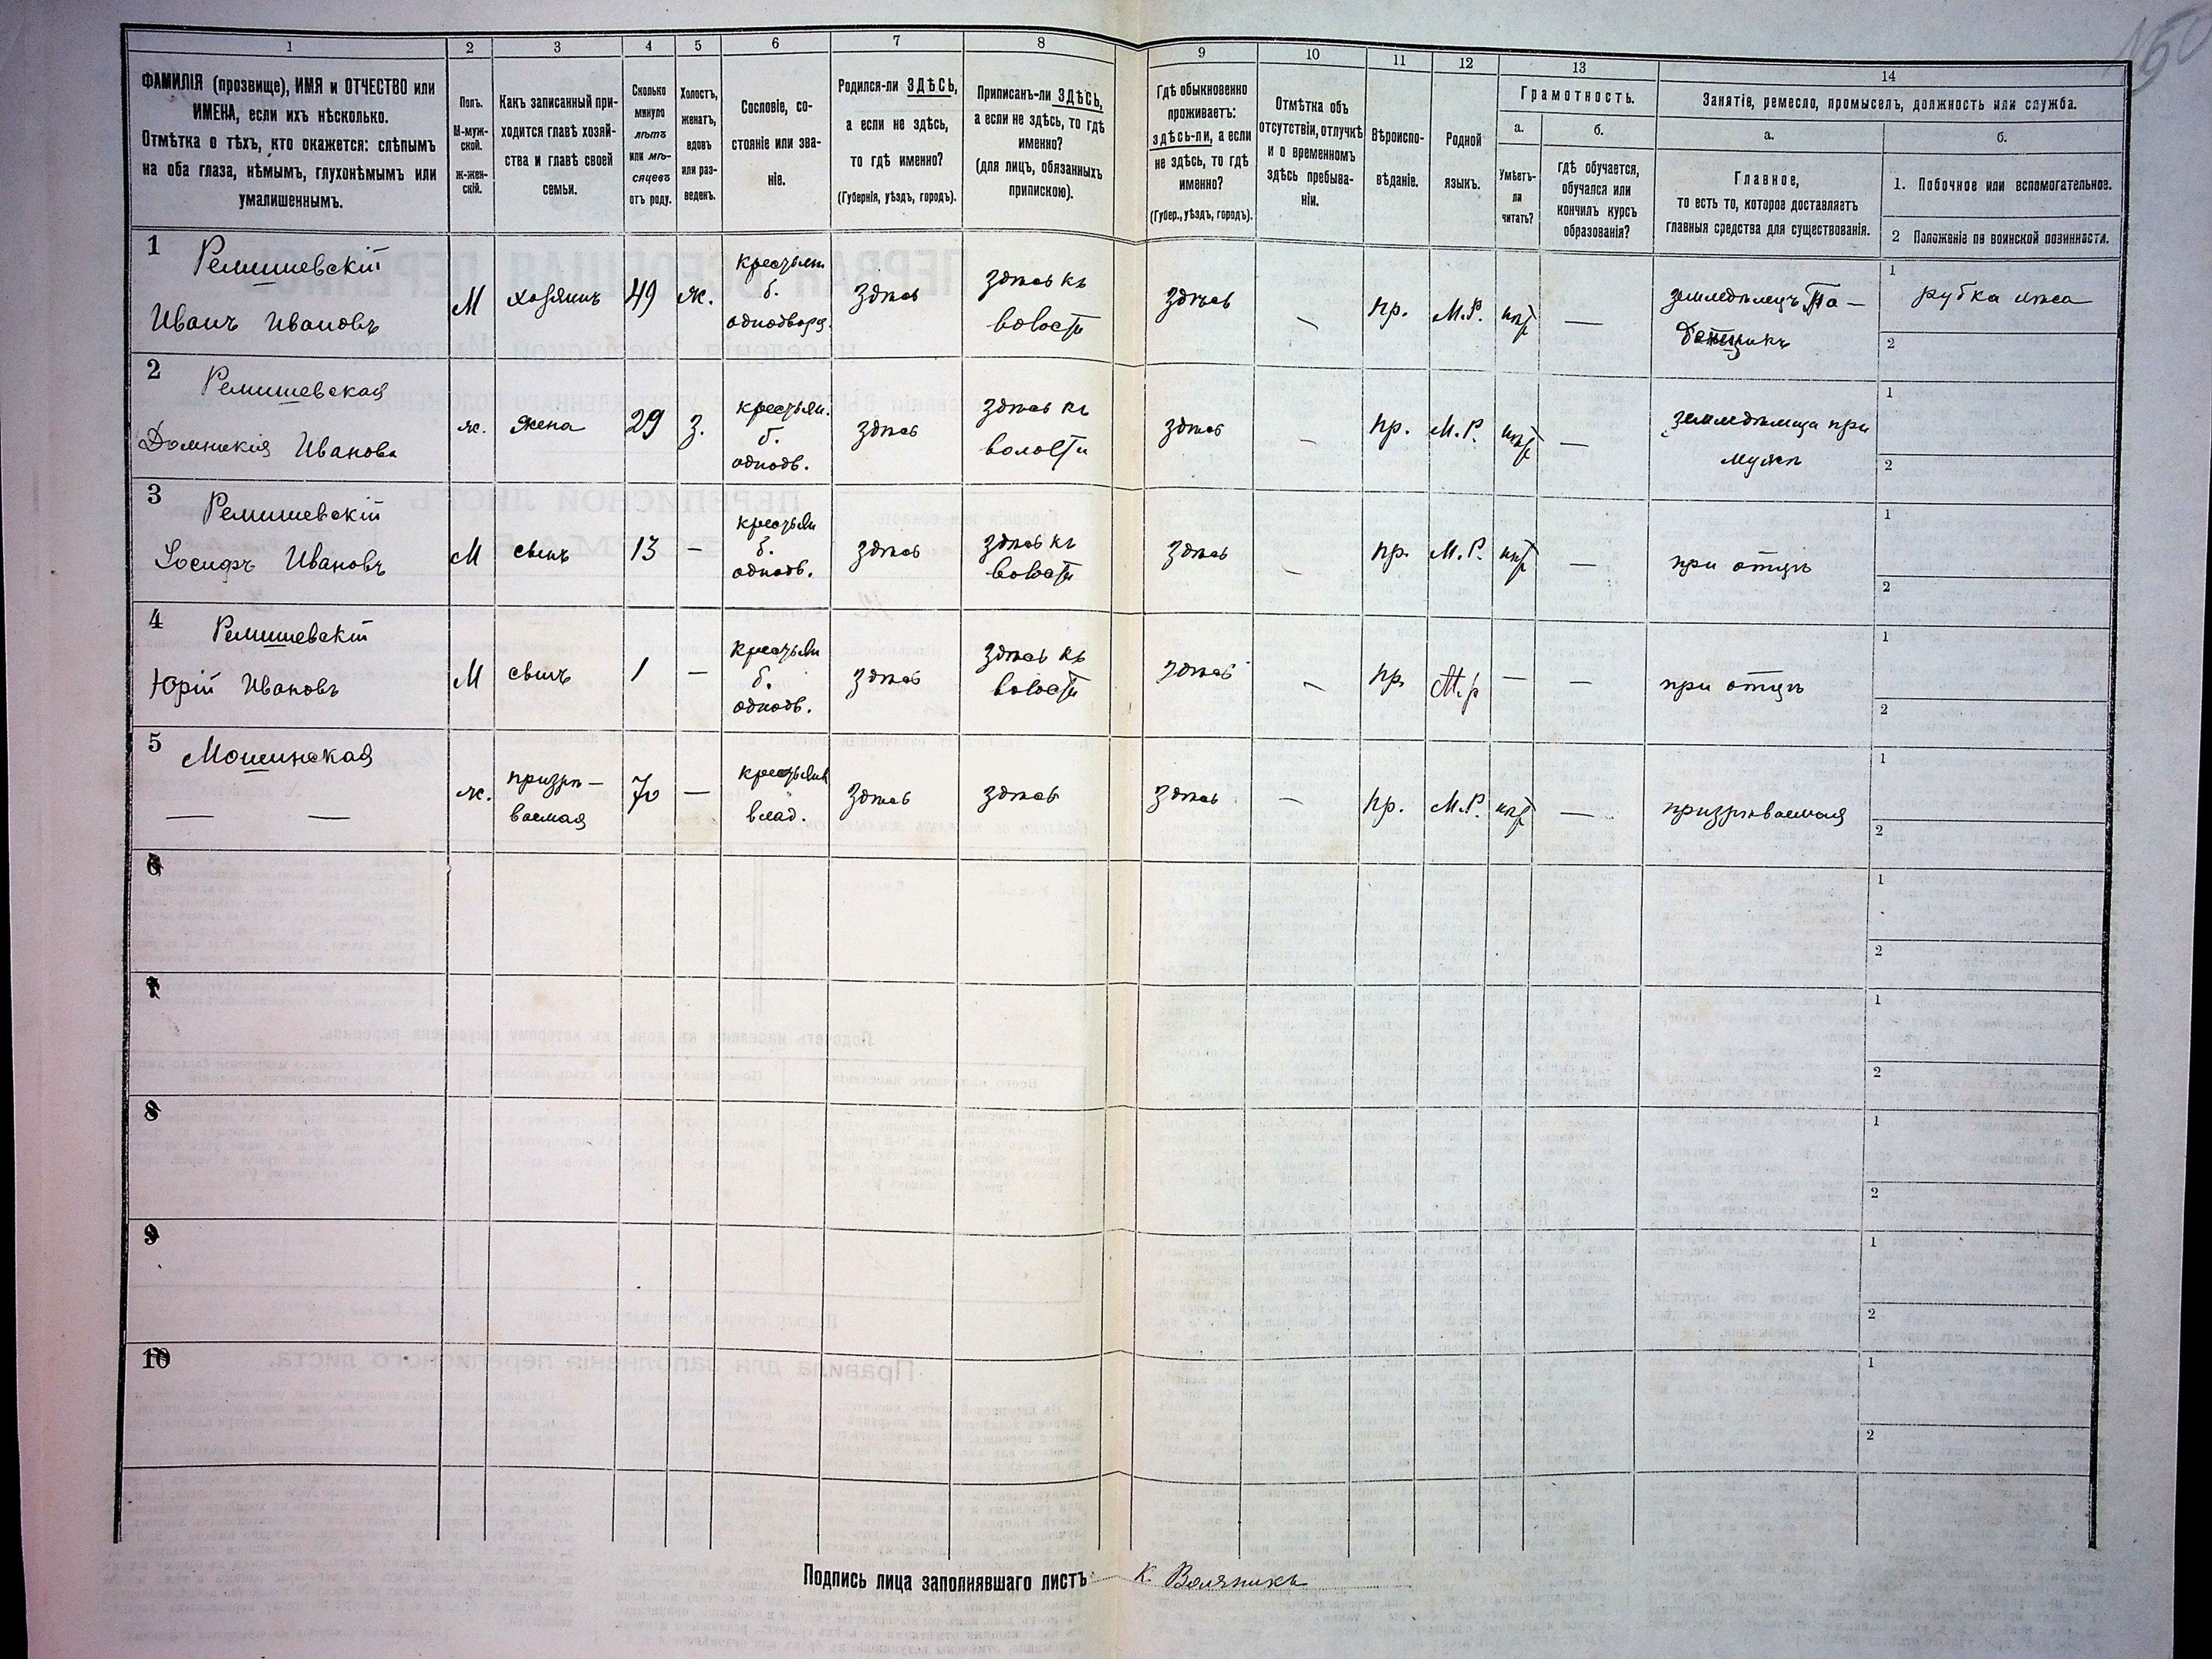 150
1 2 3 4 5 6 7 8 9 10 11 12 13 14
ФАМИЛІЯ (прозвище), ИМЯ и ОТЧЕСТВО или
ИМЕНА, если ихъ нѣсколько.
Отмѣтка о тѣхъ, кто окажется: слѣпымъ
на оба глаза, нѣмымъ, глухонѣмымъ или
умалишеннымъ.
Полъ.
М-муж-
ской.
Ж-жен-
скій.
Какъ записанный при-
ходится главѣ хозяй-
ства и главѣ своей
семьи.
Сколько
минуло
лѣтъ
или мѣ-
сяцевъ
отъ роду.
Холостъ,
женатъ,
вдовъ
или раз-
веденъ.
Сословіе, со-
стояніе или зва-
ніе.
Родился-ли ЗДѢСЬ,
а если не здѣсь,
то гдѣ именно?
(Губернія, уѣздъ, городъ).
Приписанъ-ли ЗДѢСЬ,
а если не здѣсь, то гдѣ
именно?
(для лицъ, обязанныхъ
припискою).
Гдѣ обыкновенно
проживаетъ:
здѣсь-ли, а если
не здѣсь, то гдѣ
именно?
(Губер., уѣздъ, городъ).
Отмѣтка объ
отсутствіи, отлучкѣ
и о временномъ
здѣсь пребыва-
ніи.
Вѣроиспо-
вѣданіе.
Родной
языкъ.
Грамотность.
а.
Умѣетъ-
ли
читать?
б.
гдѣ обучается,
обучался или
кончилъ курсъ
образованія?
Занятіе, ремесло, промыселъ, должность или служба.
а.
Главное,
то есть то, которое доставляетъ
главныя средства для существованія.
б.
1. Побочное или вспомогательное.
2 Положеніе по воинской повинности.
1 Ремишевскій
Иванъ Ивановъ
М хозяинъ 49 ж.
крестьян
б.
однодворц.
здѣсь
здѣсь къ
волости
здѣсь — пр. М.Р. нѣт —
земледѣлецъ
1 рубка лѣса
2
2 Ремишевская
Домникія Иванова
ж. жена 29 з.
крестьян.
б.
однодв.
здѣсь
здѣсь къ
волости
здѣсь — пр. М.Р. нѣт —
земледѣлица при
мужѣ
1
2
3 Ремишевскій
Іосифъ Ивановъ
М сынъ 13 —
крестьян
б.
однодв.
здѣсь
здѣсь къ
волости
здѣсь — пр. М.Р. нѣт —
при отцѣ
1
2
4 Ремишевскій
Юрій Ивановъ
М сынъ 1 —
крестьян
б.
однодв.
здѣсь
здѣсь къ
волости
здѣсь — пр. М.р — —
при отцѣ
1
2
5 Мошинская
— —
ж.
призрѣ-
ваемая
70 —
крестьян
влад.
здѣсь здѣсь здѣсь — пр. М.Р. нѣт —
призрѣваемая
1
2
6
1
2
7
1
2
8
1
2
9
1
2
10
1
2
Подпись лица заполнявшаго листъ К.